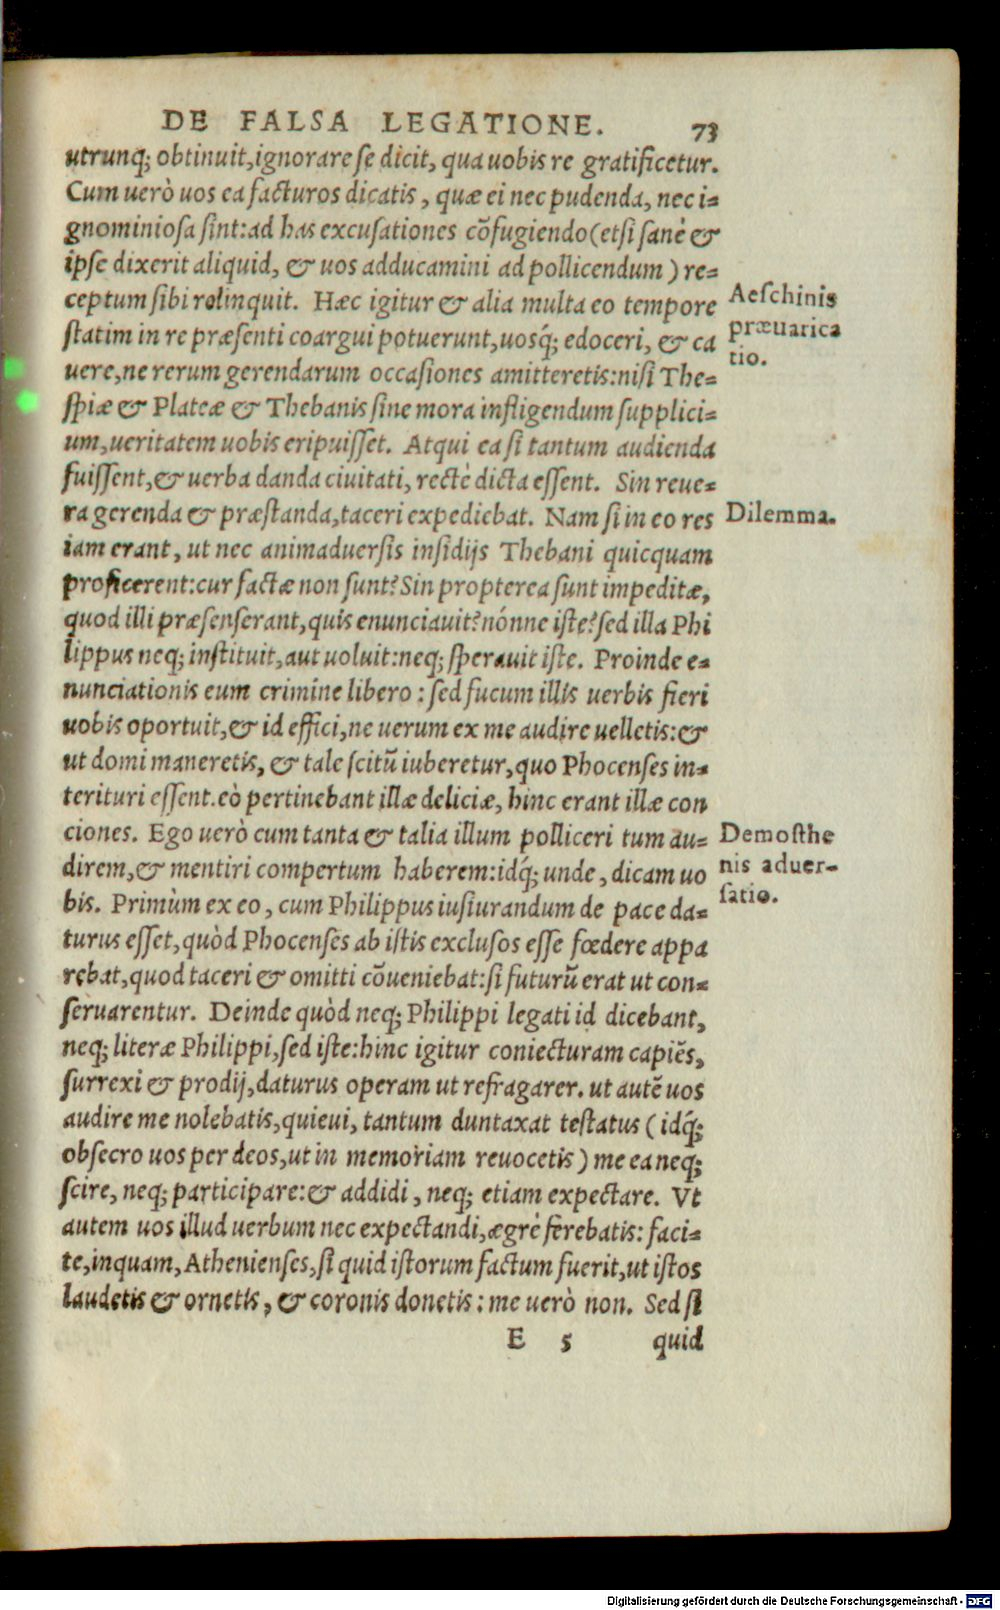 DE FALSA LEGATIONE. 73
utrunq; obtinuit, ignorare se dicit, qua uobis re gratificetur.
Cum uerò uos ea facturos dicatis, quæ ei nec pudenda, nec i-
gnominiosa sint: ad has excusationes cõfugiendo (etsi sanè &
ipse dixerit aliquid, & uos adducamini ad pollicendum) re-
ceptum sibi relinquit. Hæc igitur & alia multa eo tempore
statim in re præsenti coargui potuerunt, uosq́; edoceri, & ca
uere, ne rerum gerendarum occasiones amitteretis: nisi The-
spiæ & Plateæ & Thebanis sine mora infligendum supplici-
um, ueritatem uobis eripuisset. Atqui ea si tantum audienda
fuissent, & uerba danda ciuitati, rectè dicta essent. Sin reue-
ra gerenda & præstanda, taceri expediebat. Nam si in eo res
iam erant, ut nec animaduersis insidijs Thebani quicquam
proficerent: cur factæ non sunt? Sin propterea sunt impeditæ,
quod illi præsenserant, quis enunciauit? nónne iste? sed illa Phi
lippus neq; instituit, aut uoluit: neq; sperauit iste. Proinde e-
nunciationis eum crimine libero: sed fucum illis uerbis fieri
uobis oportuit, & id effici, ne uerum ex me audire uelletis: &
ut domi maneretis, & tale scitũ iuberetur, quo Phocenses in-
terituri essent. eò pertinebant illæ deliciæ, hinc erant illæ con
ciones. Ego uerò cum tanta & talia illum polliceri tum au-
direm, & mentiri compertum haberem: idq́; unde, dicam uo
bis. Primùm ex eo, cum Philippus iusiurandum de pace da-
turus esset, quòd Phocenses ab istis exclusos esse fœdere appa
rebat, quod taceri & omitti cõueniebat: si futurũ erat ut con-
seruarentur. Deinde quòd neq; Philippi legati id dicebant,
neq; literæ Philippi, sed iste: hinc igitur coniecturam capiẽs,
surrexi & prodij, daturus operam ut refragarer. ut autẽ uos
audire me nolebatis, quieui, tantum duntaxat testatus (idq́;
obsecro uos per deos, ut in memoriam reuocetis) me ea neq;
scire, neq; participare: & addidi, neq; etiam expectare. Vt
autem uos illud uerbum nec expectandi, ægrè ferebatis: faci-
te, inquam, Athenienses, si quid istorum factum fuerit, ut istos
laudetis & ornetis, & coronis donetis: me uerò non. Sed si
E 5 quid
Aeschinis
præuarica
tio.
Dilemma.
Demosthe
nis aduer-
satio.
Digitalisierung gefördert durch die Deutsche Forschungsgemeinschaft - DFG